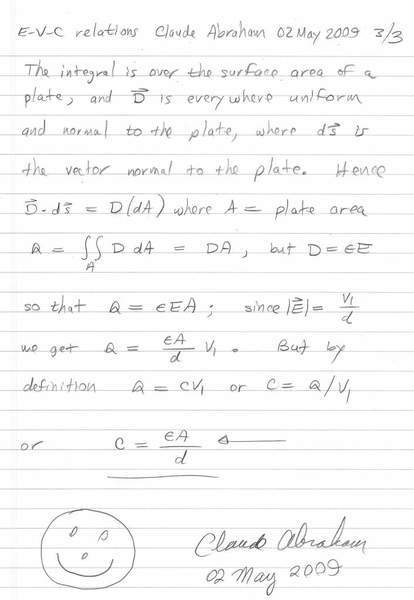 E-V-C relations Claude Abraham 02 May 2009 3/3
The integral is over the surface area of a
plate, and D⃗ is everywhere uniform
and normal to the plate, where ds⃗ is
the vector normal to the plate. Hence
D⃗·ds⃗ = D(dA) where A = plate area
Q = ∬_A D dA = DA, but D = εE
so that Q = εEA; since |E⃗| = V₁/d
we get Q = εA/d V₁. But by
definition Q = CV₁ or C = Q/V₁
or C = εA/d ←
Claude Abraham
02 May 2009